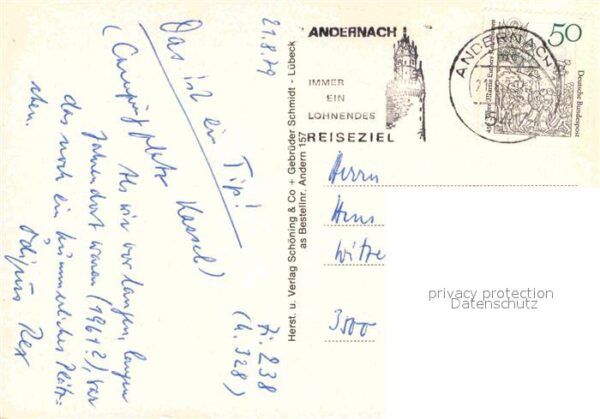 21.8.79
Das ist ein Tip!
(Campingplatz Kassel)
Als wir vor langen, langen
Jahren dort waren (1961?), war
das noch ein kümmerliches Plätz-
chen.
Ödipus Rex
Fi. 238
(h. 328)
Herst. u. Verlag Schöning & Co + Gebrüder Schmidt - Lübeck
as Bestellnr. Andern 157
ANDERNACH
IMMER
EIN
LOHNENDES
REISEZIEL
ANDERNACH
50
Deutsche Bundespost
Herrn
Hans
Witze
3500
privacy protection
Datenschutz